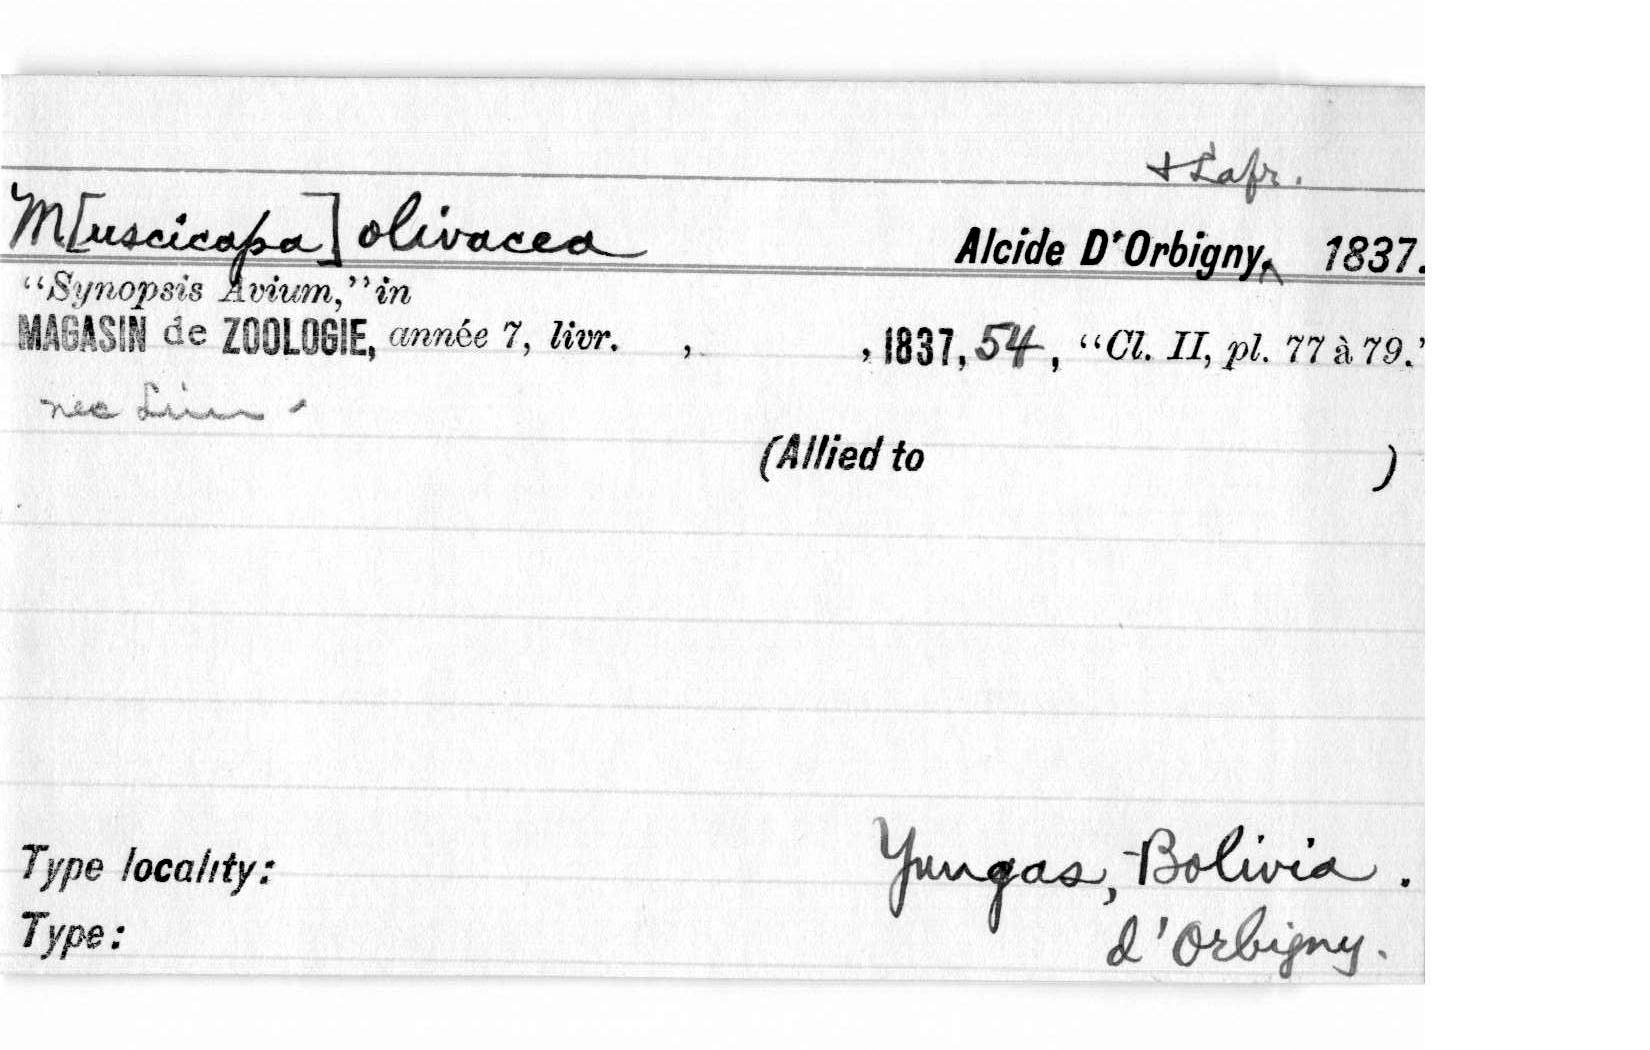 + Lafr.
M[uscicapa] olivacea Alcide D'Orbigny,^ 1837.
"Synopsis Avium," in
MAGASIN de ZOOLOGIE, année 7, livr. , , 1837, 54, "Cl. II, pl. 77 à 79."
nec Linn.
(Allied to )
Type locality: Yungas, Bolivia.
Type: d'Orbigny.